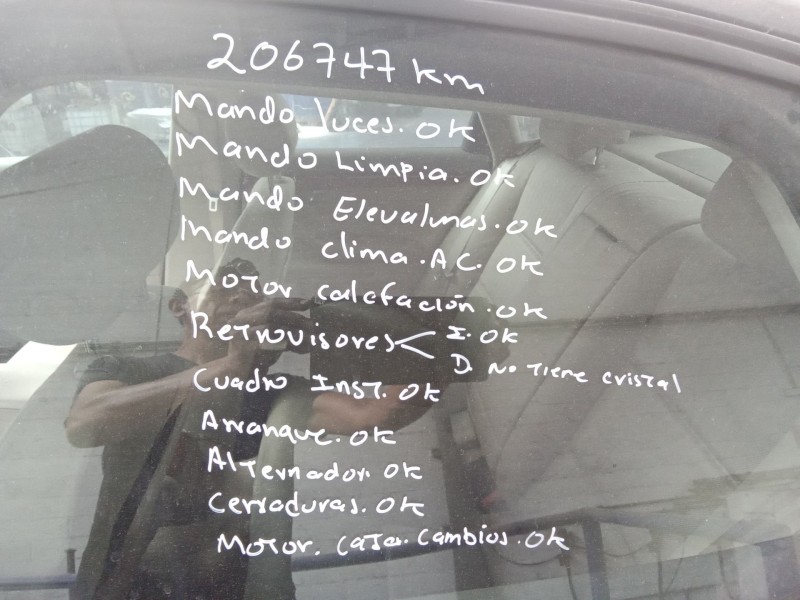 206747 km
Mando luces. OK
Mando Limpia. OK
Mando Elevalunas. OK
Mando clima. A.C. OK
Motor calefación. OK
Retrovisores < I. OK
D. No Tiene cristal
Cuadro Inst. OK
Arranque. OK
Alternador. OK
Cerraduras. OK
Motor. Caja. Cambios. OK